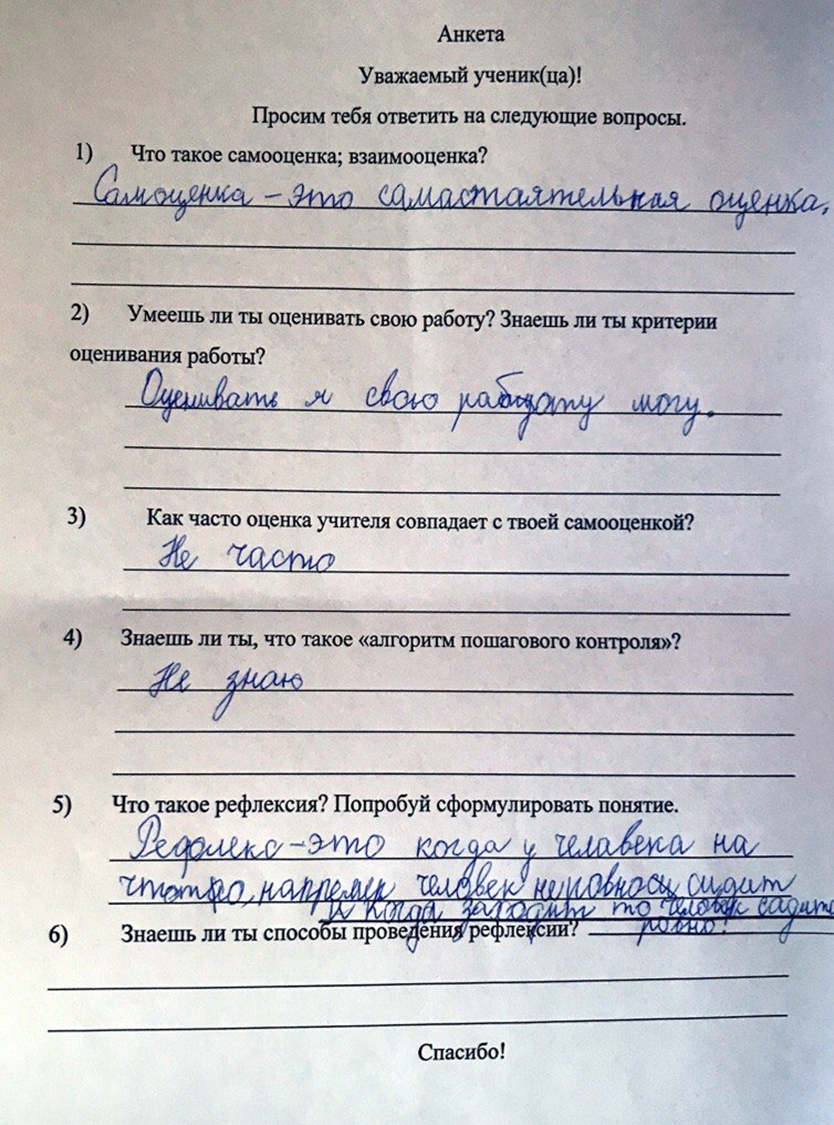 Анкета
Уважаемый ученик(ца)!
Просим тебя ответить на следующие вопросы.
1) Что такое самооценка; взаимооценка?
Самоценка – это самастаятельная оценка,
2) Умеешь ли ты оценивать свою работу? Знаешь ли ты критерии
оценивания работы?
Оценивать я свою могу.
3) Как часто оценка учителя совпадает с твоей самооценкой?
Не часто
4) Знаешь ли ты, что такое «алгоритм пошагового контроля»?
Не знаю
5) Что такое рефлексия? Попробуй сформулировать понятие.
Рефлекс – это когда у челавека на
человек сидит
и когда то человек
6) Знаешь ли ты способы проведения рефлексии? ровно!
Спасибо!